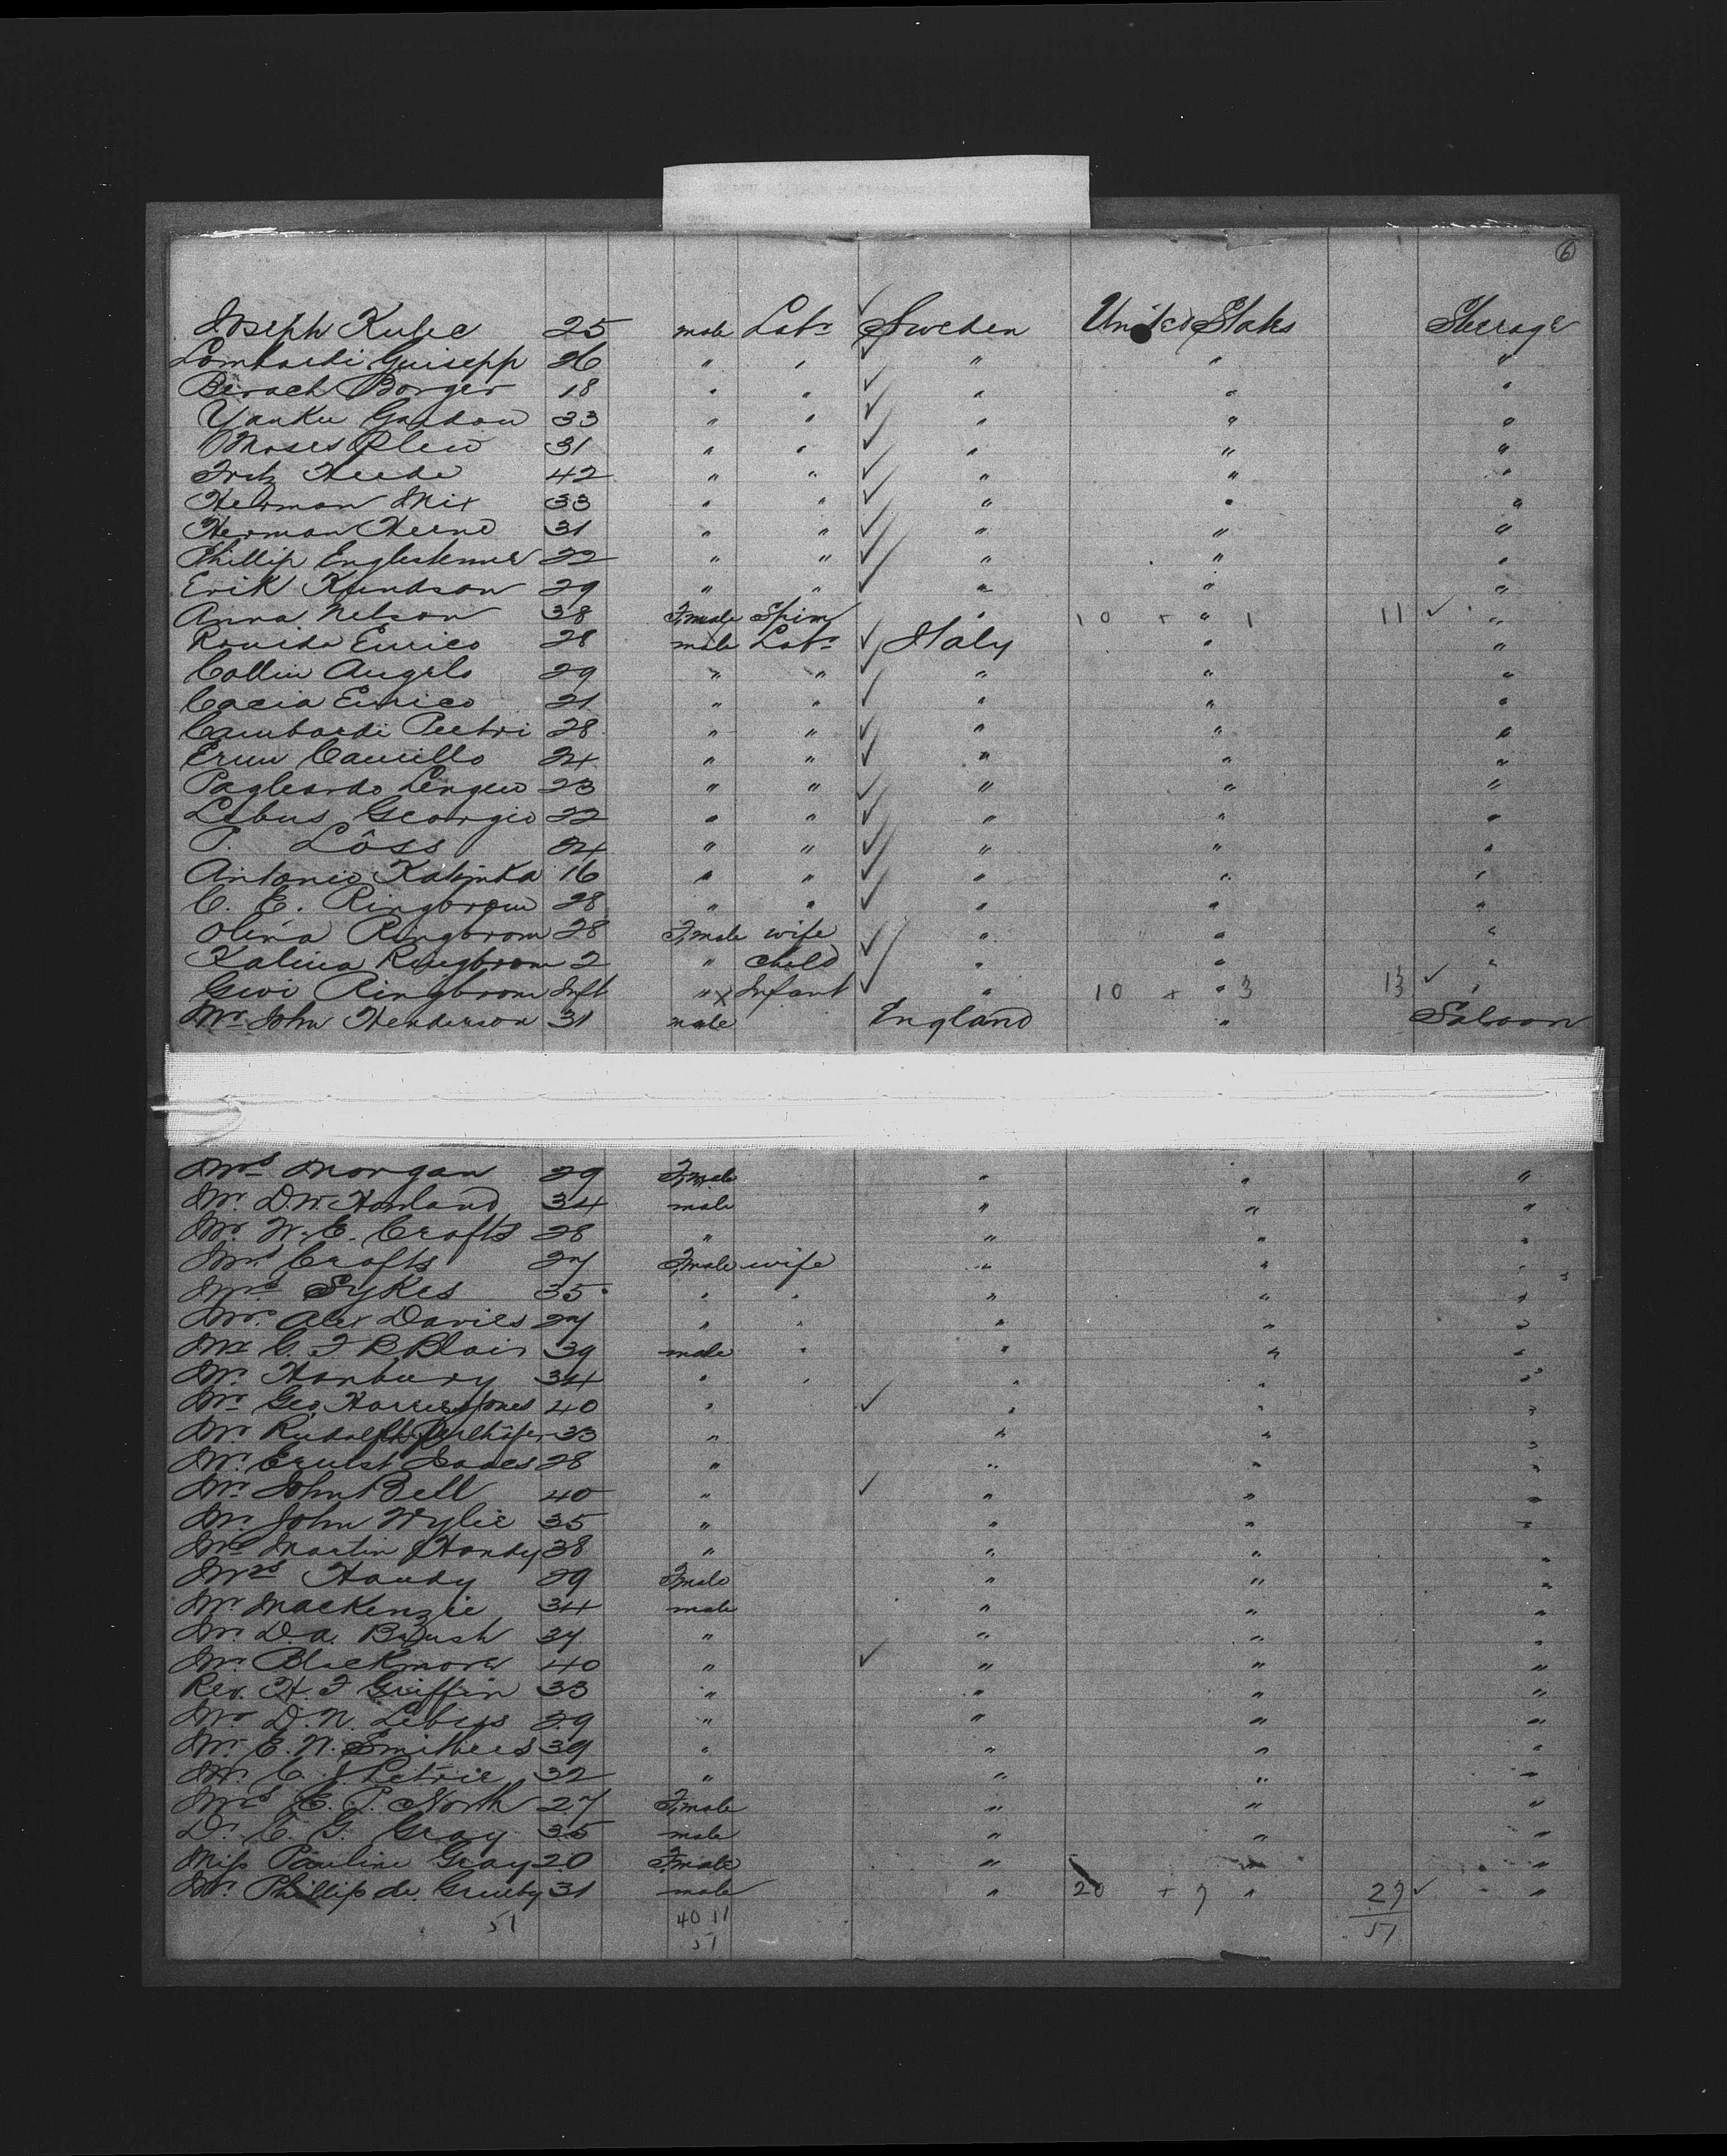 6
Joseph Kulec 25 male Labr ✓ Sweden United States Steerage
Lombardi Guisepp 26 " " ✓ " " "
Berach Borger 18 " " ✓ " " "
Yanku Gordon 33 " " ✓ " " "
Moses Plew 31 " " ✓ " " "
Fritz Heede 42 " " ✓ " " "
Herman Mix 33 " " ✓ " " "
Herman Herne 31 " " ✓ " " "
Phillip 22 " " ✓ " " "
Erik Knudson 29 " " ✓ " " "
Anna Nelson 38 Female Spin " 10 + " 1 11 ✓ "
Enrico 28 male Labr ✓ Italy " "
Collin Angelo 29 " " ✓ " " "
Cacia Enrico 21 " " ✓ " " "
Cambardi Peetri 28 " " ✓ " " "
Camillo 24 " " ✓ " " "
Pagleardo 23 " " ✓ " " "
Lebus Georgio 22 " " ✓ " " "
P. Lôss 24 " " ✓ " " "
Antonio Katinka 16 " " ✓ " " "
C. E. Ringbrom 28 " " ✓ " " "
Olina Ringbrom 28 Female wife ✓ " " "
Kalina Ringbrom 2 " Child ✓ " " "
Ringbrom Inft " x Infant ✓ " 10 + " 3 13 ✓ "
Mr John Henderson 31 male England " Saloon
Mrs Morgan 29 Female " " "
Mr D.W. Howland 34 male " " "
Mr W. E. Crofts 28 " " " "
Mrs Crofts 27 Female wife " " "
Mrs Sykes 35 " " " " "
Mrs Alex Davies 27 " " " " "
Mr C. F. B Blair 39 male " " " "
Mr Hanbury 34 " " " " "
Mr Geo Harris Jones 40 " ✓ " " "
Mr Rudolph 33 " " " "
Mr Ernst Isaacs 28 " " " "
Mr John Bell 40 " ✓ " " "
Mr John Wylie 35 " " " "
Mr Martin Handy 38 " " " "
Mrs Handy 29 Female " " "
Mr MacKenzie 34 male " " "
Mr D.A. Brush 37 " " " "
Mr Blackmore 40 " ✓ " " "
Rev. H. F Griffin 33 " " " "
Mr D. N. Lebus 29 " " " "
Mr E. N. Smithers 39 " " " "
Mr C. J. Petrie 32 " " " "
Mrs E. P. North 27 Female " " "
Dr E. G. Gray 35 male " " "
Miss Pauline Gray 20 Female " " "
Mr Phillip de 31 male " 20 + 7 " 27 ✓ "
51 40 11 51
51